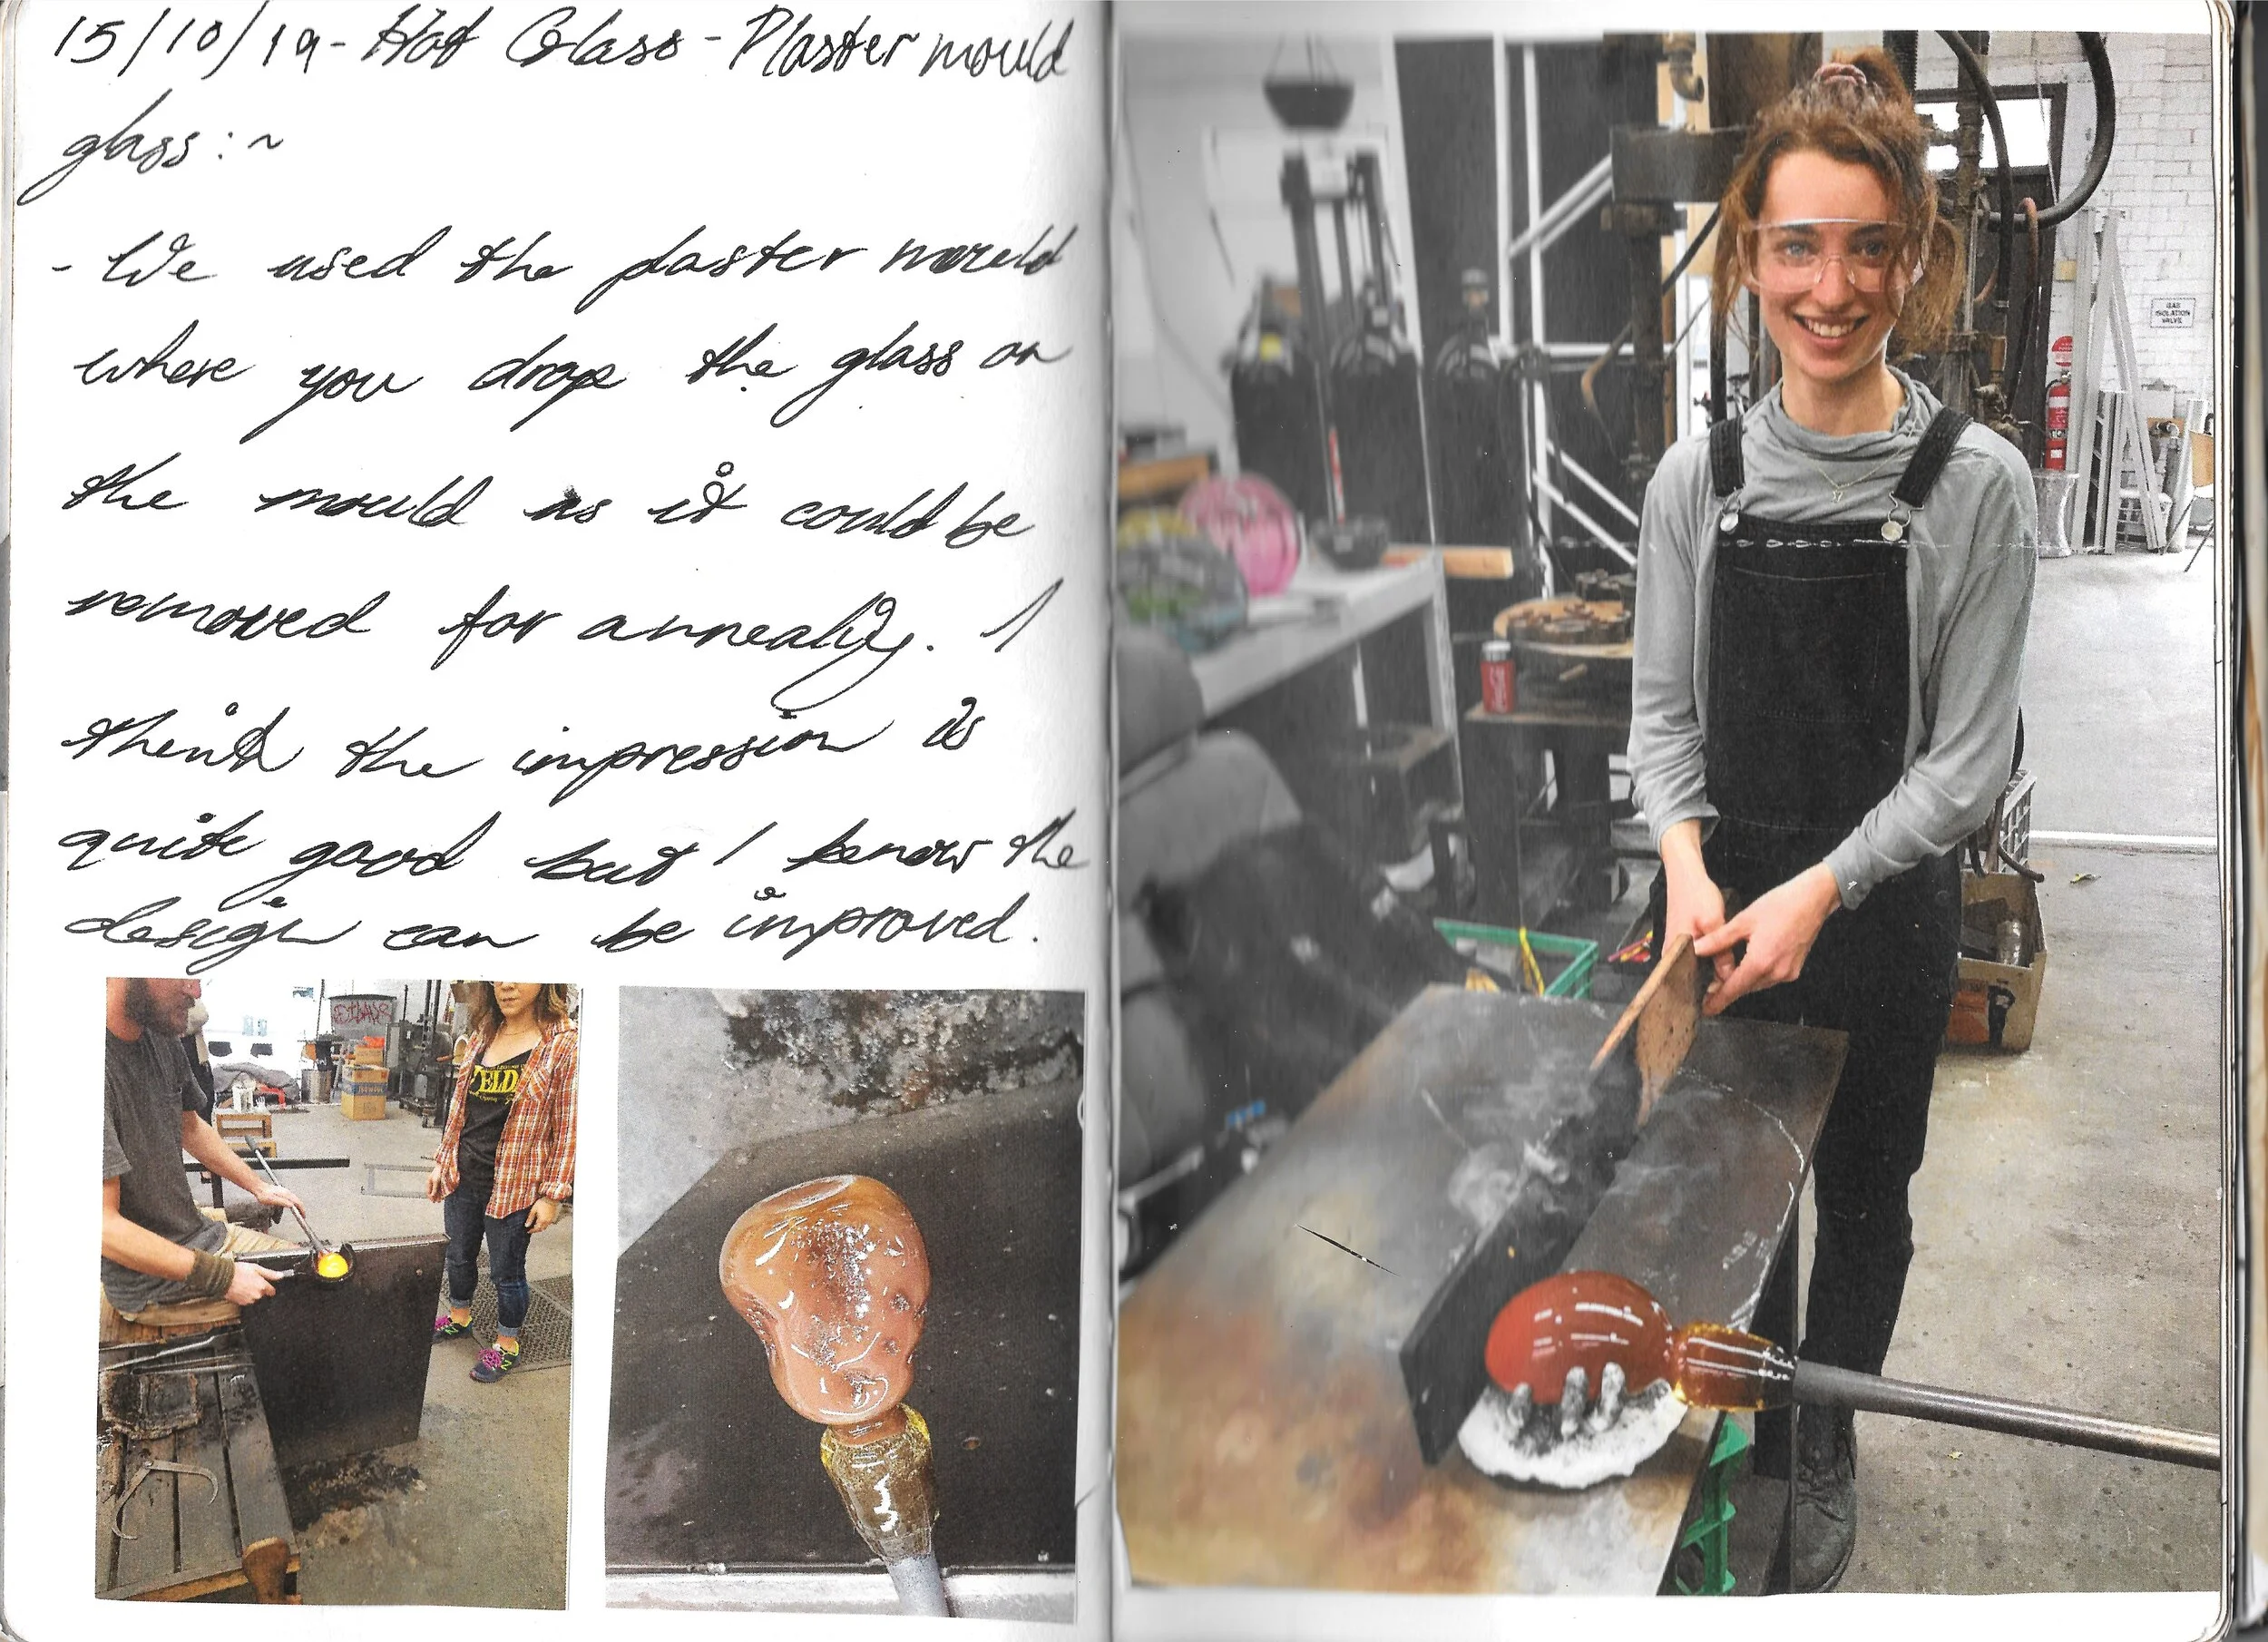 15/10/19 - Hot Glass - Plaster mould
glass :~
- We used the plaster mould
where you drop the glass on
the mould as it could be
removed for annealing. I
think the impression is
quite good but I know the
design can be improved.
ZELDA
GAS
ISOLATION
VALVE